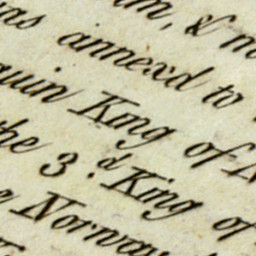 m, & m
as annexd to
quin King of N
the 3.d King of
Norway